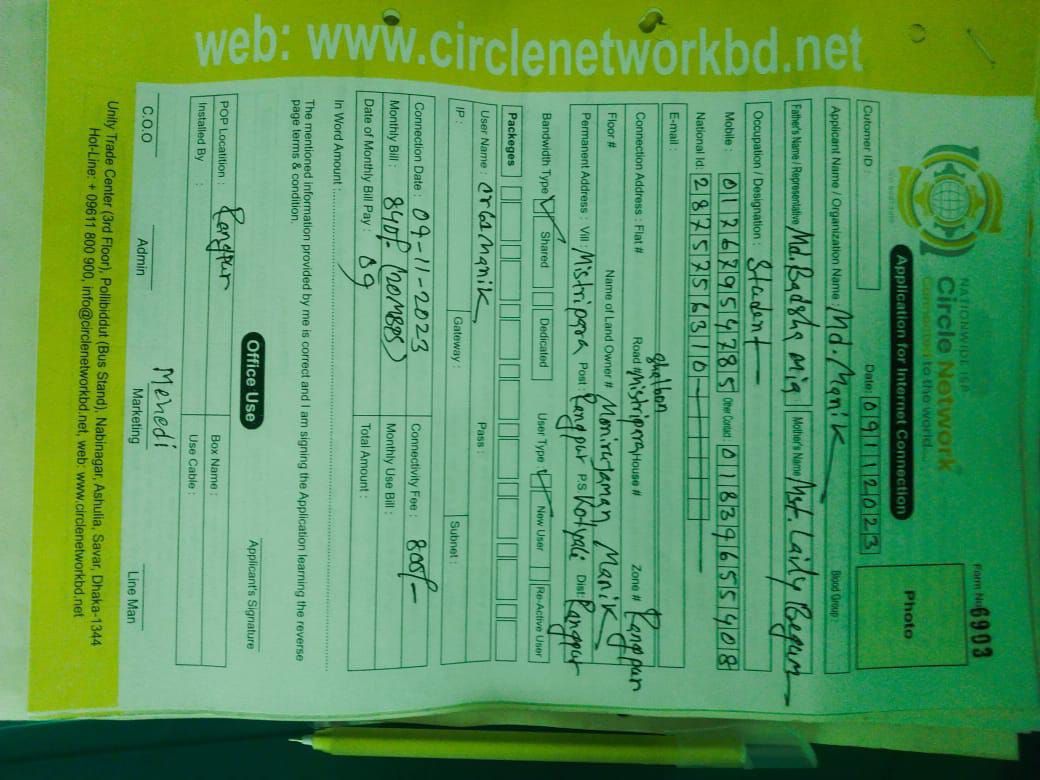 web: www.circlenetworkbd.net
NATIONWIDE ISP
Circle Network
Connected to the world...
Form No 6903
Application for Internet Connection
Photo
Cutomer ID :
Date: 09112023
Applicant Name / Organization Name : Md. Manik
Blood Group :
Father's Name / Representative Md. Badsha mia Mother's Name Mst. Laily Begum
Occupation / Designation : Student
Mobile : 01767954785 Other Contact : 01839655408
National Id: 2875756310
E-mail :
Shalbon
Connection Address : Flat # Road # Mistripara House # Zone # Rangpur
Floor # Name of Land Owner # Monirujaman Manik
Permanent Address : Vill : Mistripara Post : Rangpur P.S. Kotyali Dist: Rangpur
Bandwidth Type Shared Dedicated User Type New User Re-Active User
Packeges
User Name : crbsmanik Pass :
IP : Gateway : Subnet :
Connection Date : 09-11-2023 Connectivity Fee : 800/-
Monthly Bill : 840/- Monthly Use Bill :
Date of Monthly Bill Pay : 09 Total Amount :
In Word Amount :
The mentioned information provided by me is correct and I am signing the Application learning the reverse
page terms & condition.
Applicant's Signature
Office Use
POP Locatition : Rangpur Box Name :
Installed By : Use Cable :
Mehedi
C.O.O Admin Marketing Line Man
Unity Trade Center (3rd Floor), Pollibiddut (Bus Stand), Nabinagar, Ashulia, Savar, Dhaka-1344
Hot-Line: + 09611 800 900, info@circlenetworkbd.net, web: www.circlenetworkbd.net